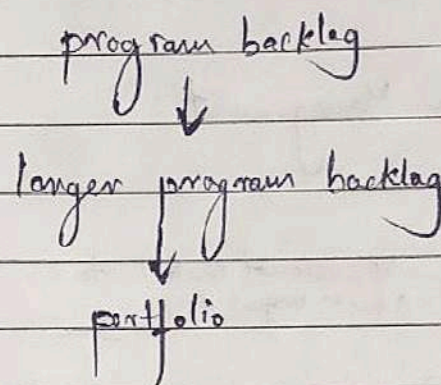 program backlog
longer program backlog
portfolio